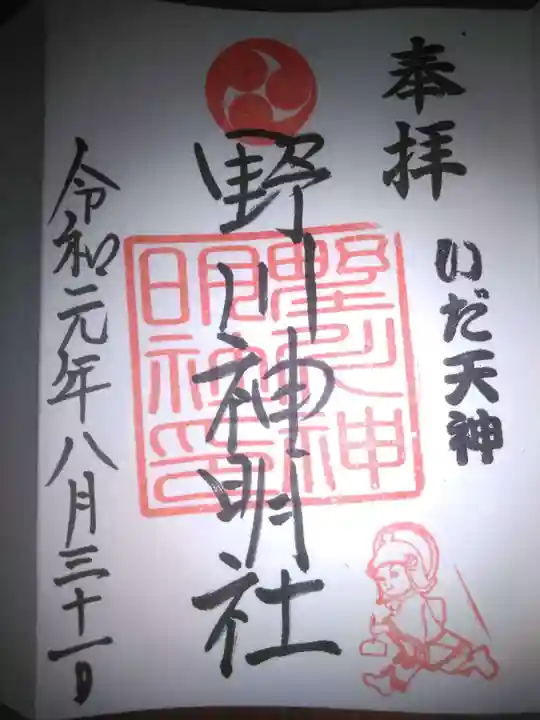 奉拝
いだ天神
野川神明社
令和元年八月三十一日